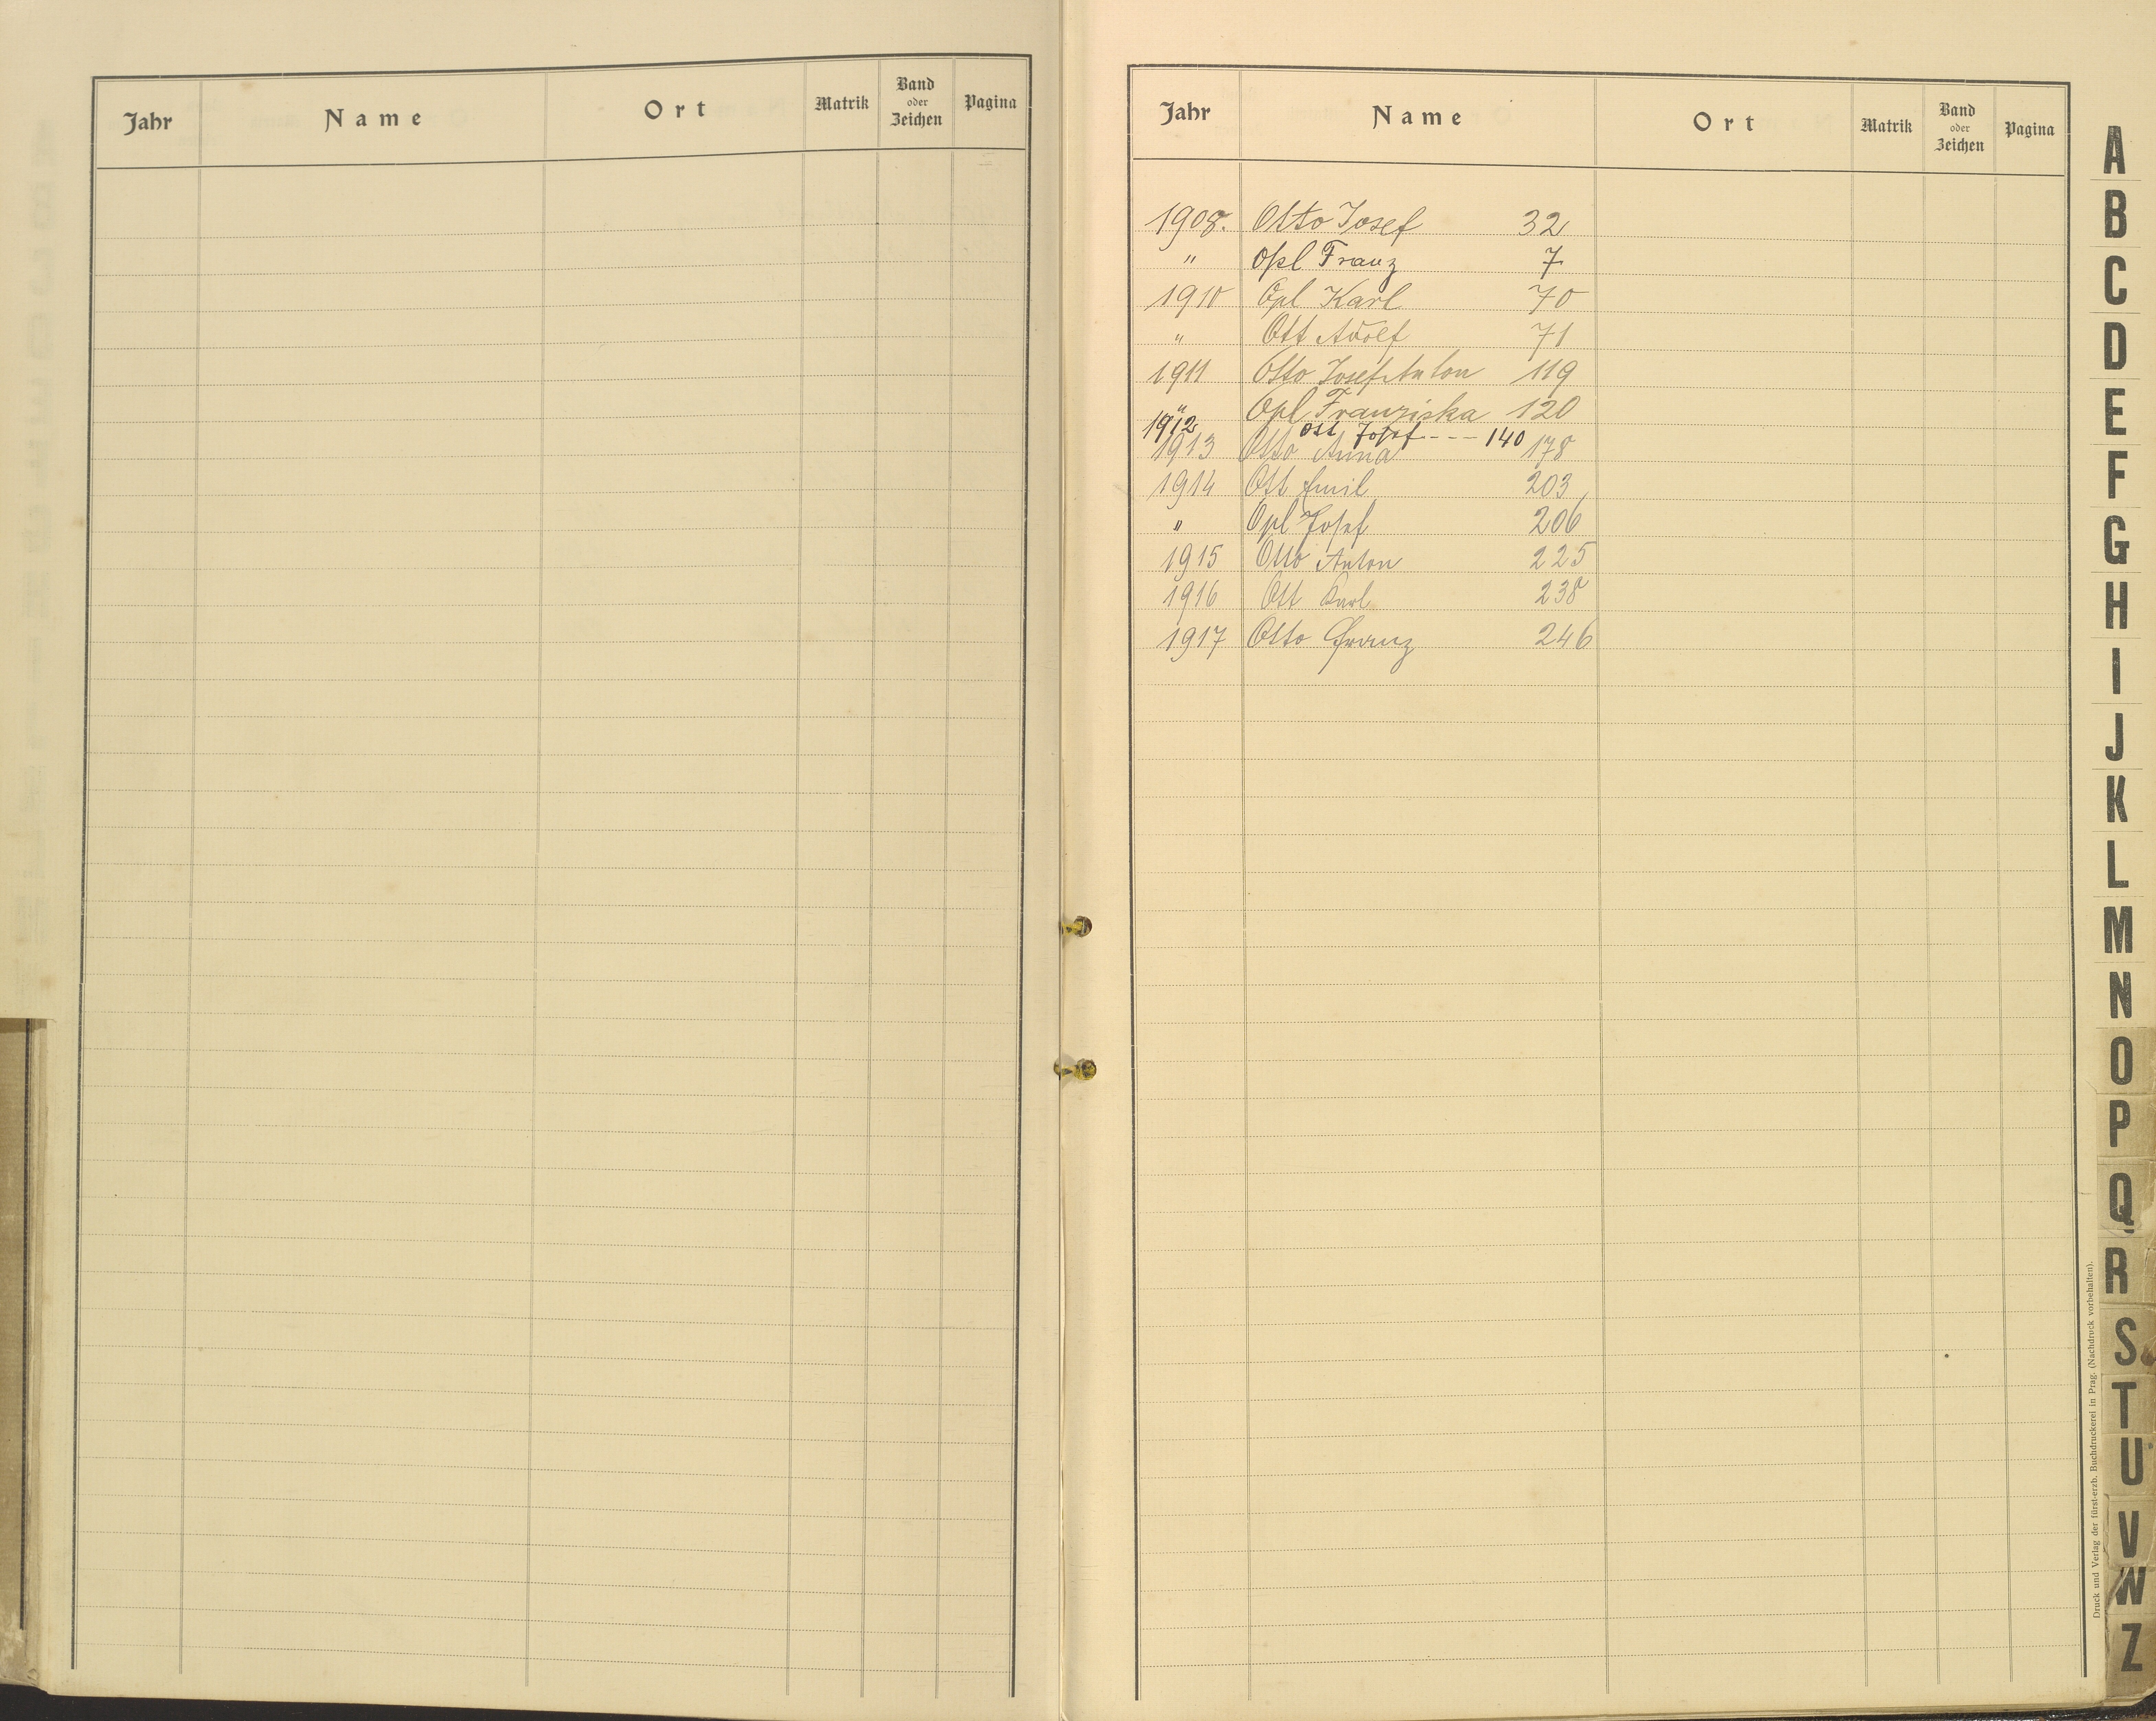 Jahr Name Ort Matrik Band oder Zeichen Pagina
Jahr Name Ort Matrik Band oder Zeichen Pagina
1908. Otto Josef 32
" Opl Franz 7
1910 Opl Karl 70
" Ott Adolf 71
1911 Otto Josef Anton 119
" Opl Franziska 120
1912 Ott Josef - - - - 140
1913 Otto Anna 178
1914 Ott Emil 203
" Opl Josef 206
1915 Otto Anton 225
1916 Ott Karl 238
1917 Otto Franz 246
A
B
C
D
E
F
G
H
I
J
K
L
M
N
O
P
Q
R
S
T
U
V
W
Z
Druck und Verlag der fürst-erzb. Buchdruckerei in Prag. (Nachdruck vorbehalten).